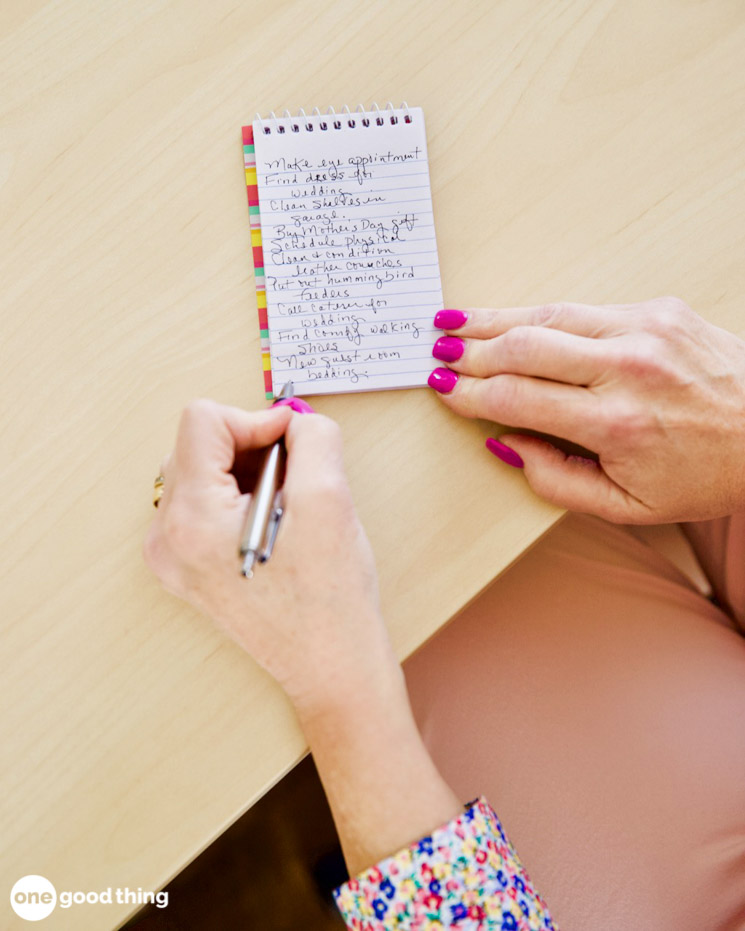 Make eye appointment
Find dress for
wedding
Clean shelves in
garage.
Buy Mother's Day gift
Schedule physical
Clean & condition
leather couches
Put out humming bird
feeders
Call caterer for
wedding
Find comfy walking
shoes
New guest room
bedding.
one good thing